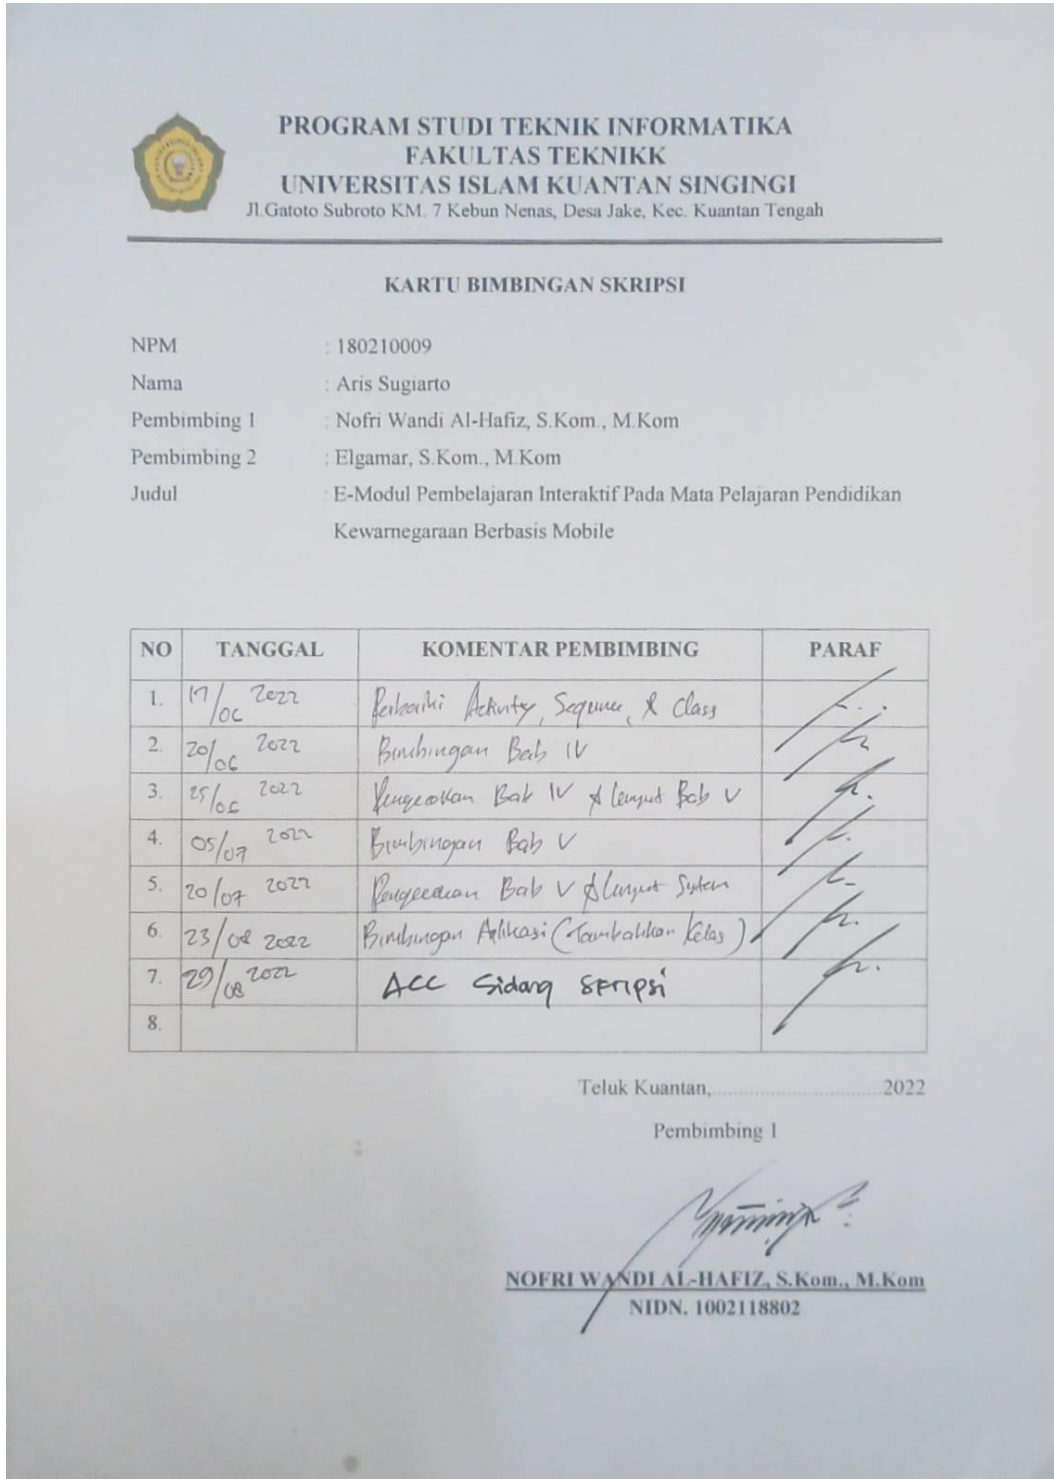 PROGRAM STUDI TEKNIK INFORMATIKA
FAKULTAS TEKNIKK
UNIVERSITAS ISLAM KUANTAN SINGINGI
Jl.Gatoto Subroto KM. 7 Kebun Nenas, Desa Jake, Kec. Kuantan Tengah
KARTU BIMBINGAN SKRIPSI
NPM : 180210009
Nama : Aris Sugiarto
Pembimbing 1 : Nofri Wandi Al-Hafiz, S.Kom., M.Kom
Pembimbing 2 : Elgamar, S.Kom., M.Kom
Judul : E-Modul Pembelajaran Interaktif Pada Mata Pelajaran Pendidikan
Kewarnegaraan Berbasis Mobile
NO TANGGAL KOMENTAR PEMBIMBING PARAF
1. 17/06 2022 Perbaiki Activity, Sequence, & Class
2. 20/06 2022 Bimbingan Bab IV
3. 25/06 2022 Pengecekan Bab IV & lanjut Bab V
4. 05/07 2022 Bimbingan Bab V
5. 20/07 2022 Pengecekan Bab V & lanjut System
6. 23/08 2022 Bimbingan Aplikasi (Tambahkan Kelas)
7. 29/08 2022 ACC Sidang Skripsi
8.
Teluk Kuantan,..............................2022
Pembimbing 1
NOFRI WANDI AL-HAFIZ, S.Kom., M.Kom
NIDN. 1002118802